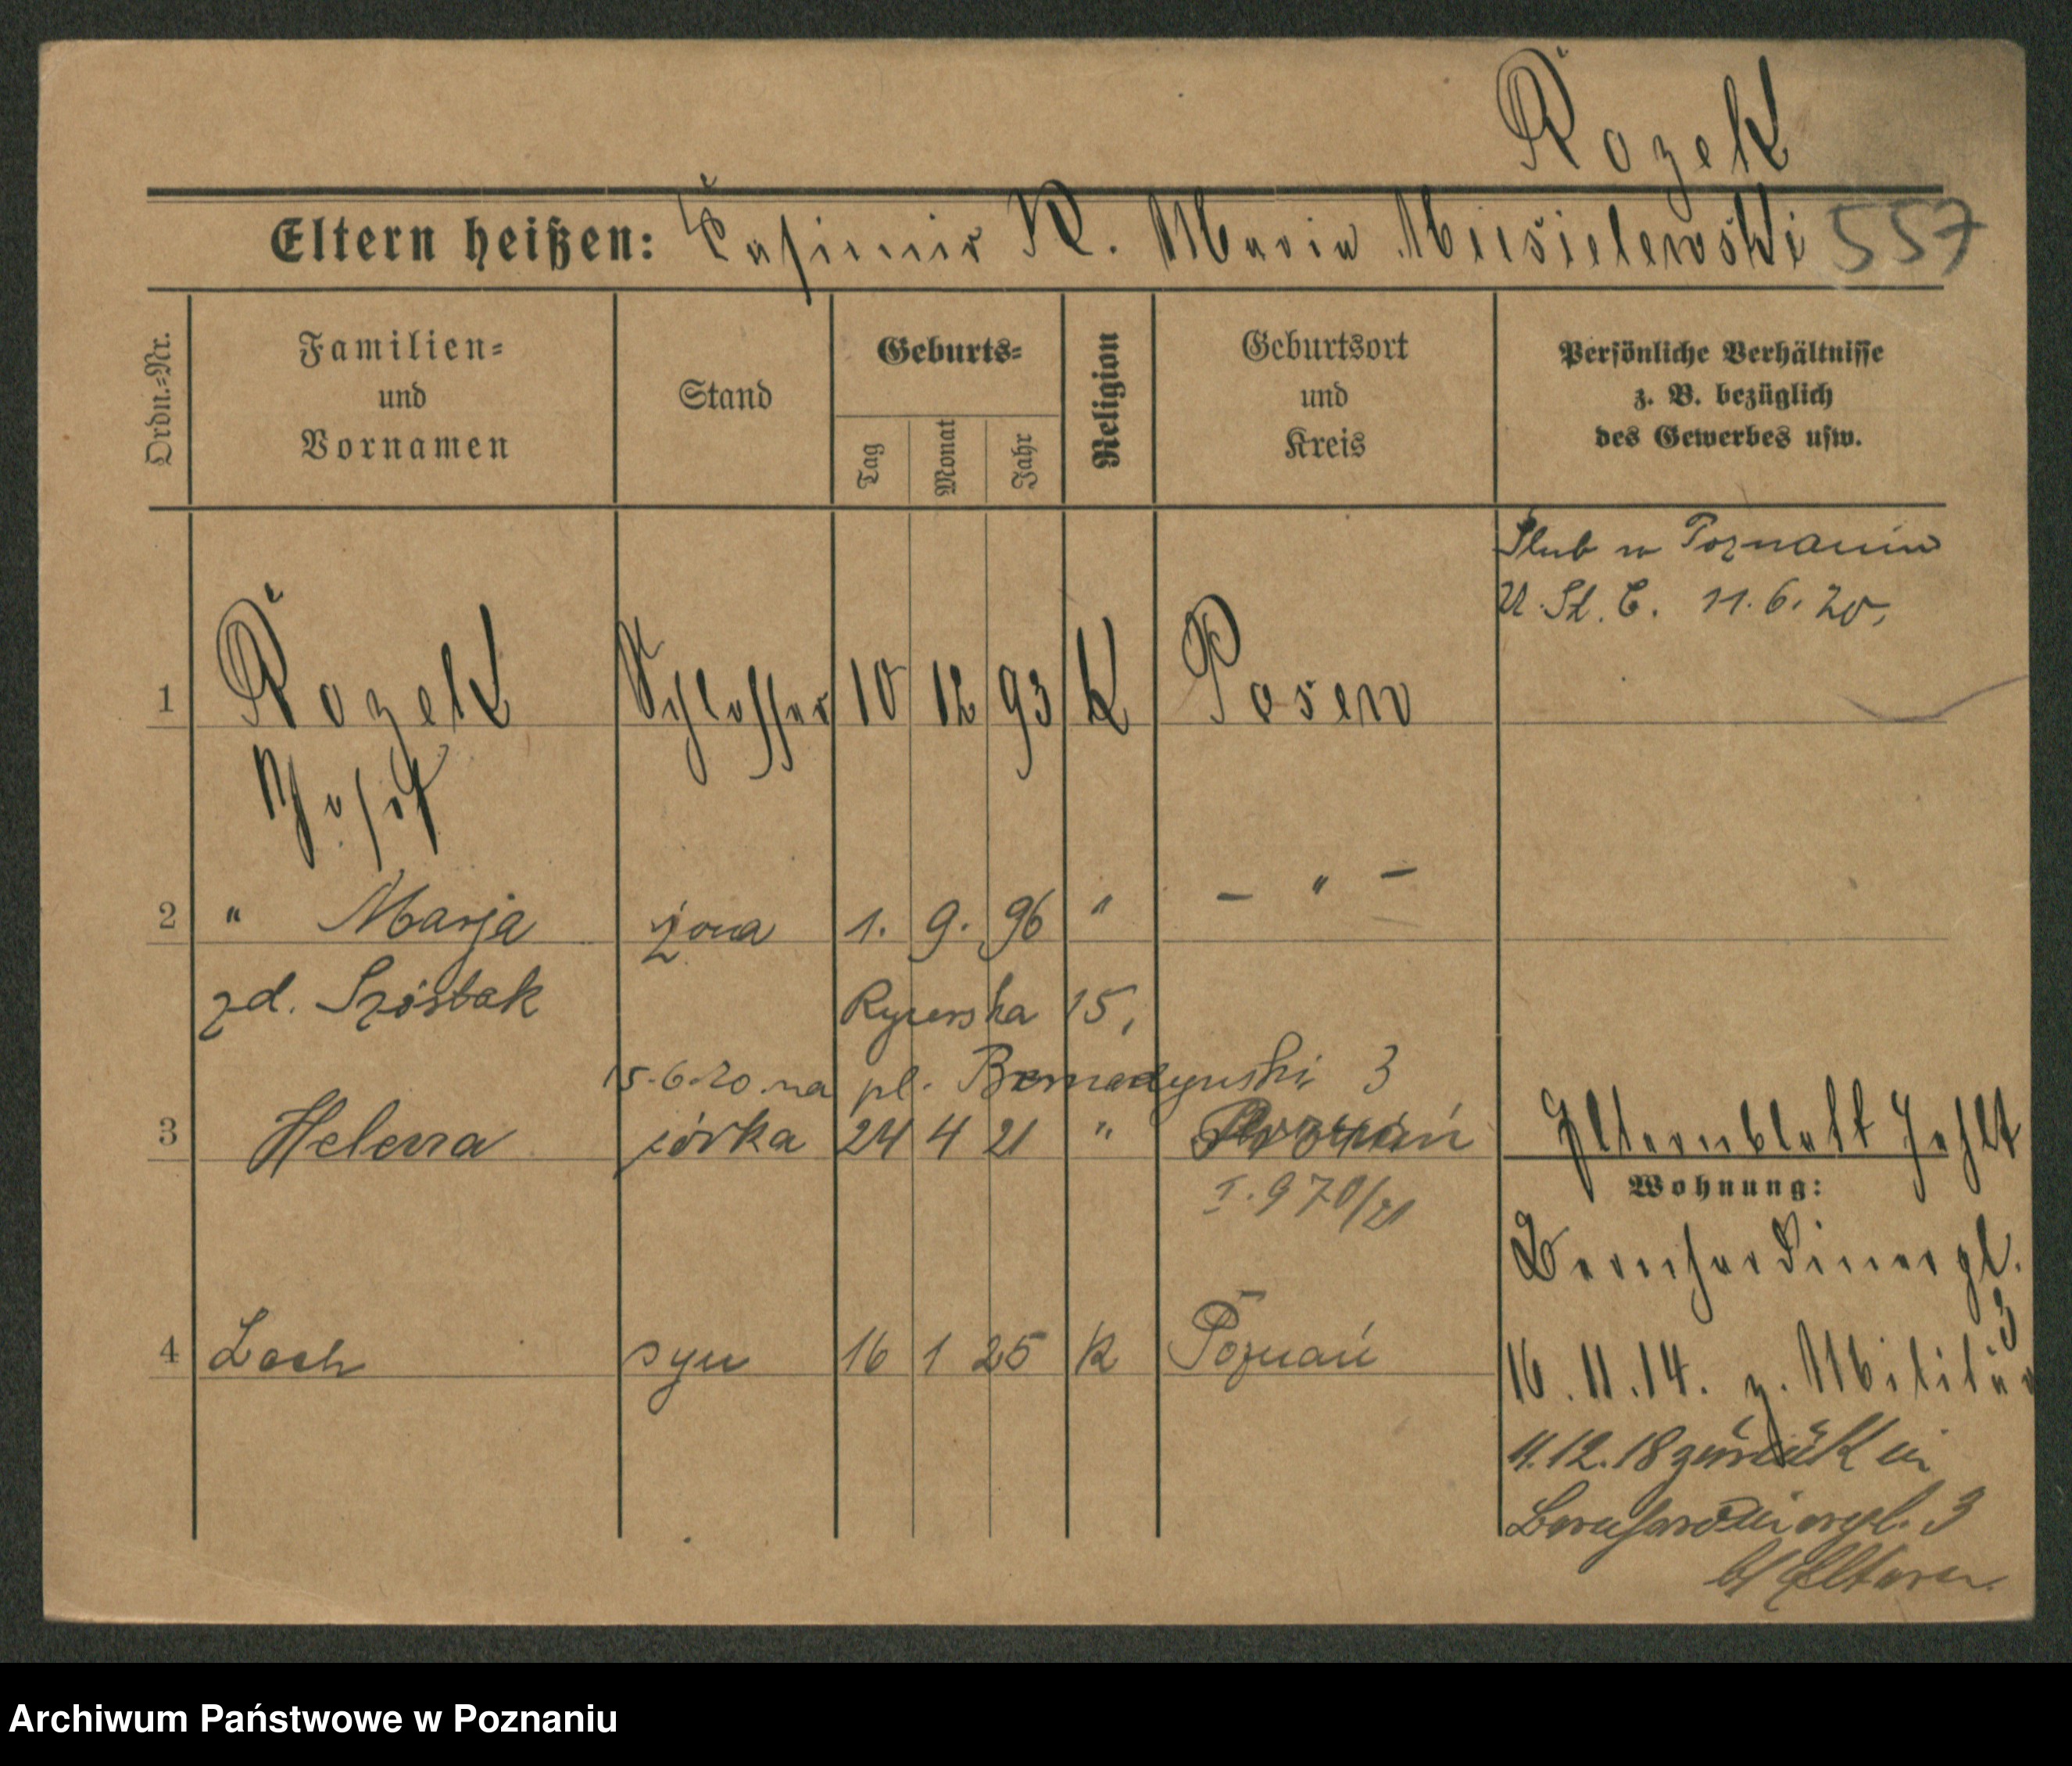 Rozek
Eltern heißen: Casimir R. Maria Miesielewski 557
Ordn.-Nr.
Familien-
und
Vornamen
Stand
Geburts-
Tag
Monat
Jahr
Religion
Geburtsort
und
Kreis
Persönliche Verhältnisse
z. B. bezüglich
des Gewerbes usw.
Ślub w Poznaniu
U. St. C. 11.6.20.
1 Rozek Schlosser 10 12 93 K Posen
Josef
2 " Marja żona 1. 9. 96 " — " —
zd. Szóstak Rycerska 15,
15.6.20 na pl. Bernadynski 3
3 Helena córka 24 4 21 " Poznań
I. 970/21
Elternblatt fehlt
Wohnung:
Bernhardinerpl.
3
4 Lech syn 16 1 25 K Poznań
16.11.14. z. Militär
4.12.18 zurück in
Bernhardinerpl. 3
b/ Eltern.
Archiwum Państwowe w Poznaniu